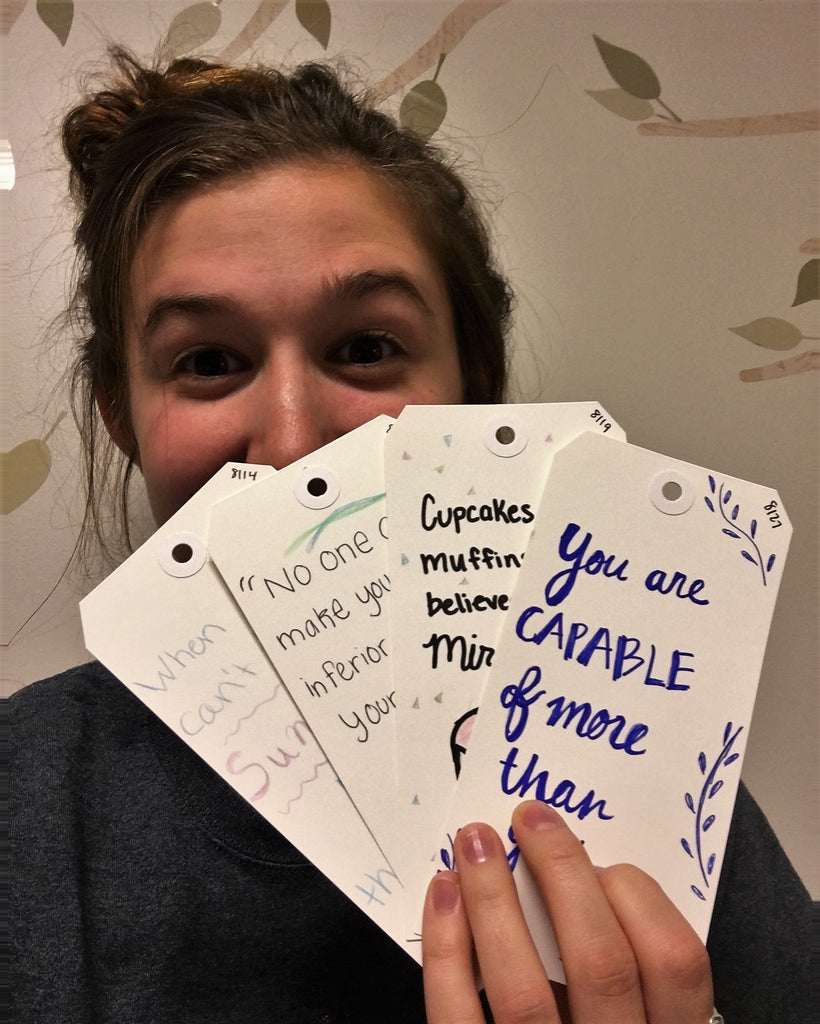 8/14
When
can't
Sun
th
"No one
make you
inferior
your
8/19
Cupcakes
muffin
believe
Mir
8/27
You are
CAPABLE
of more
than